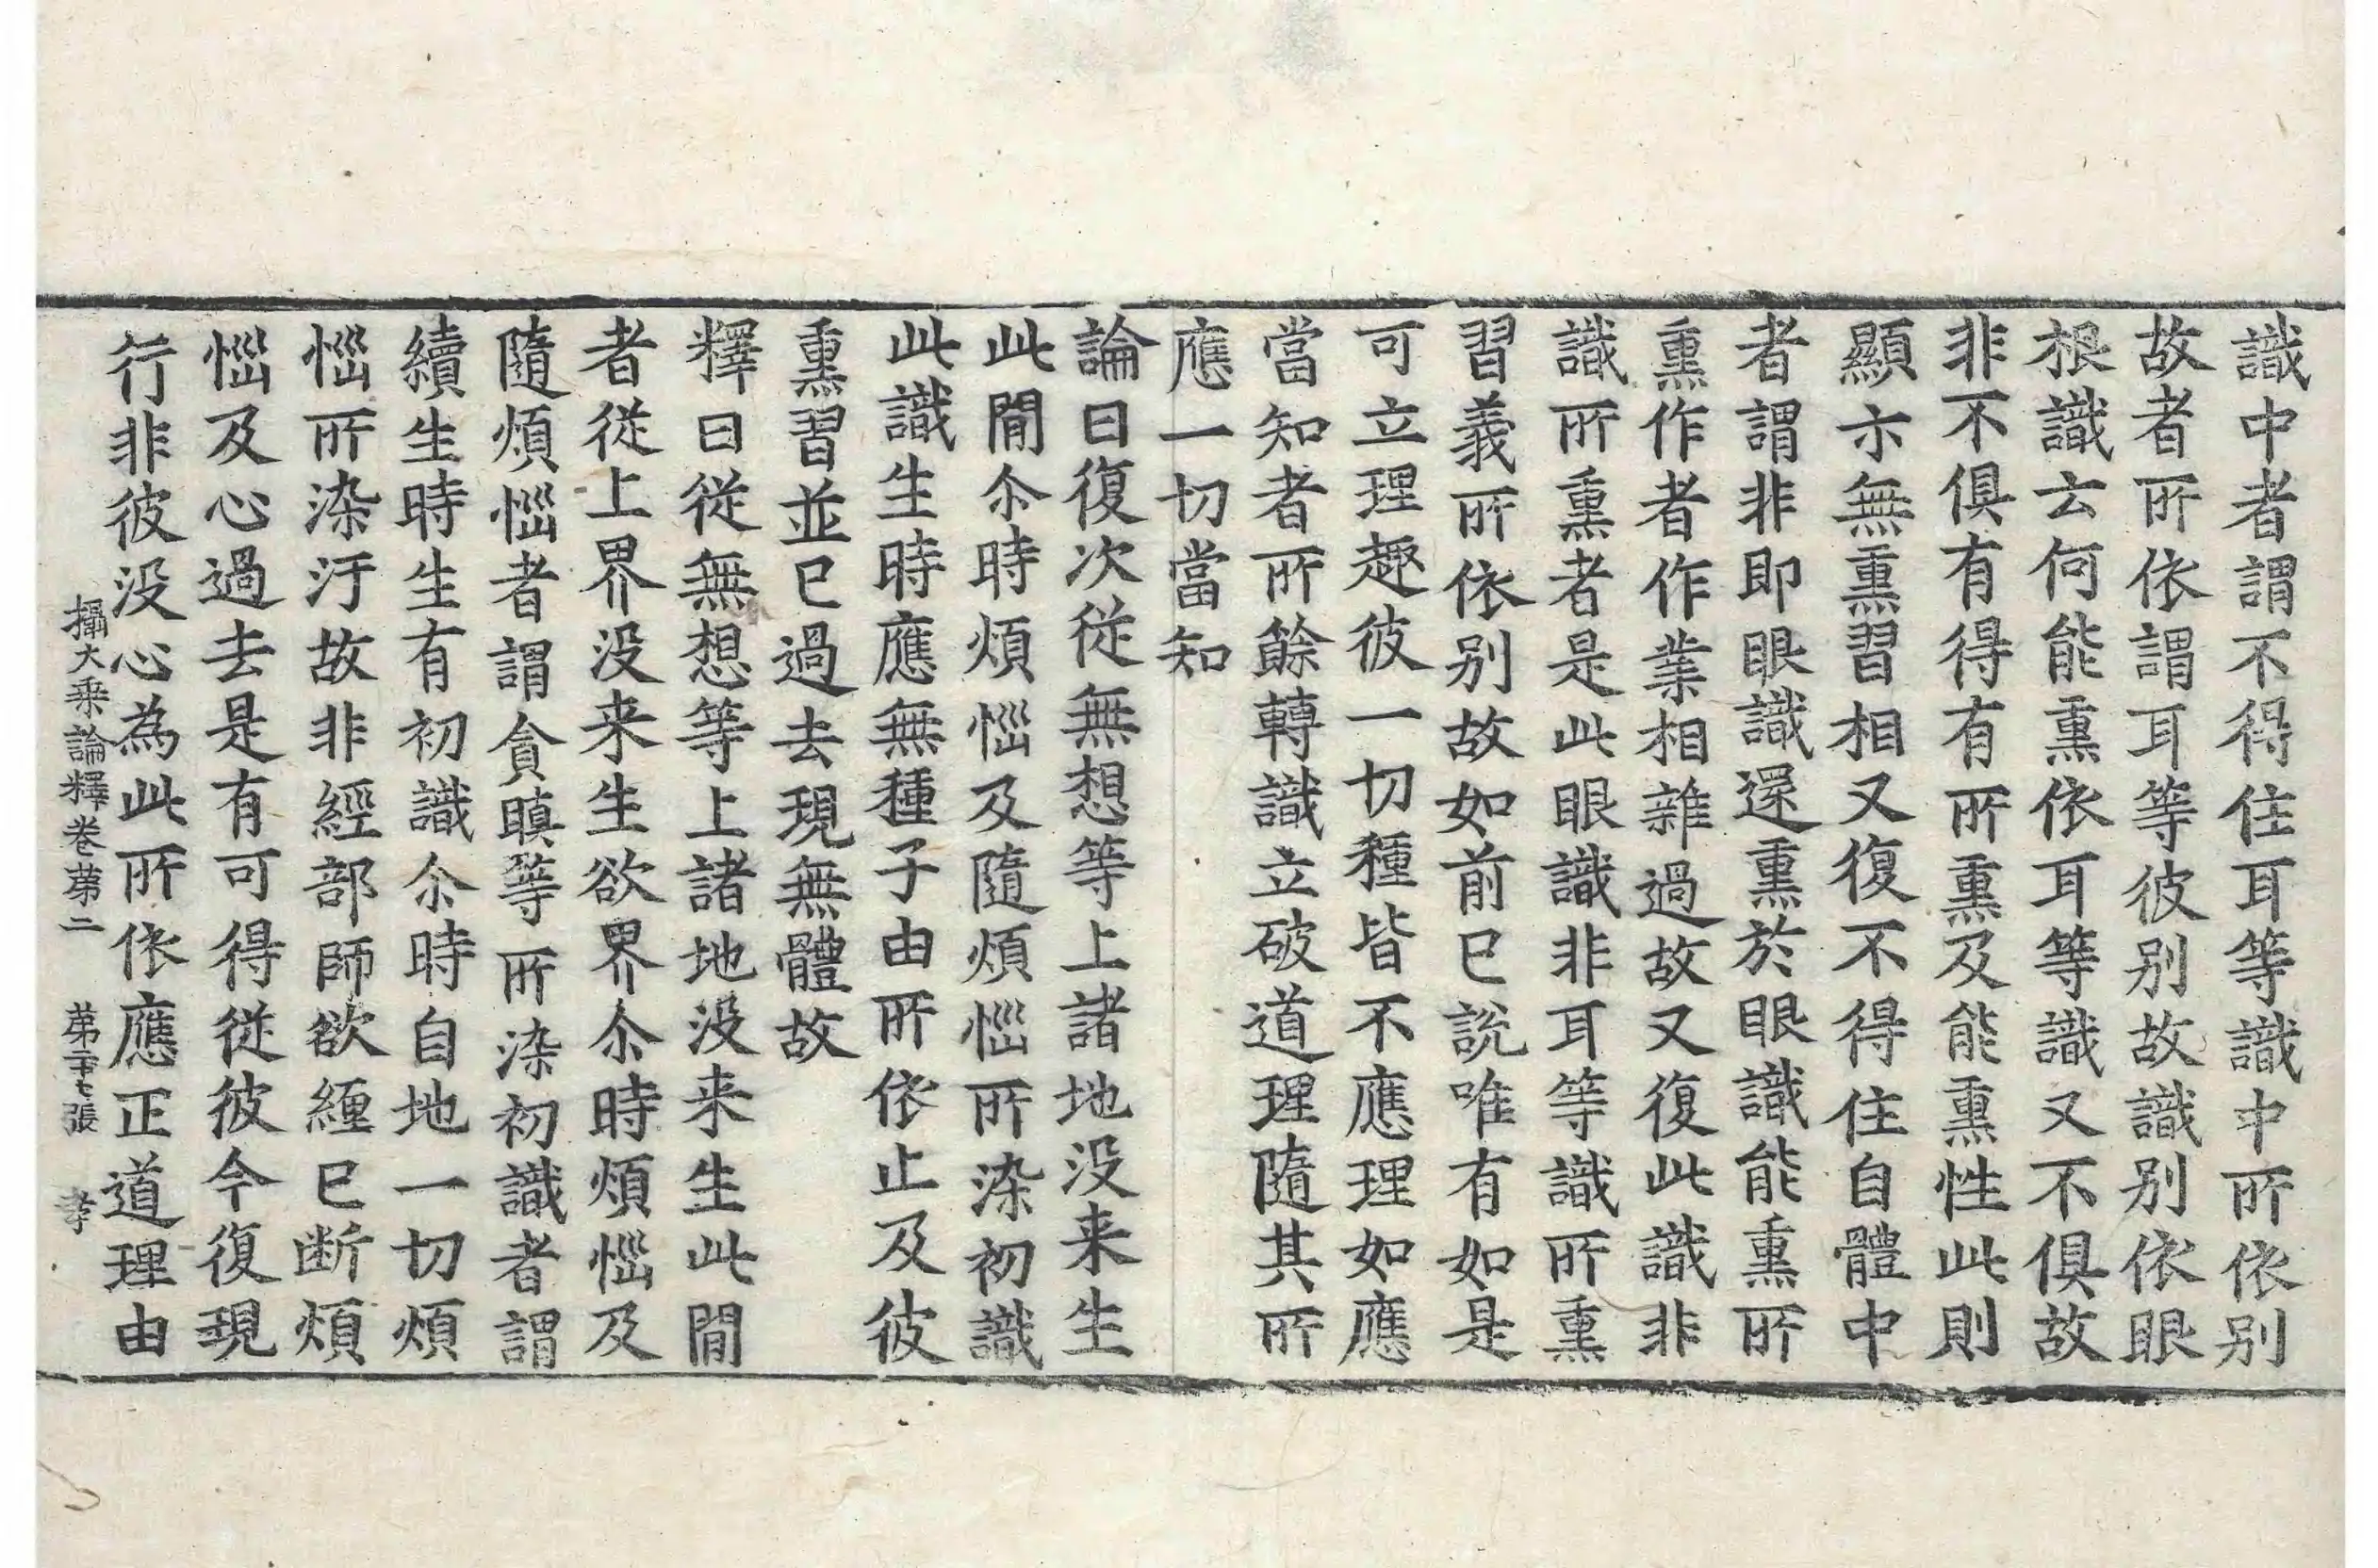 識中者謂不得住耳等識中所依别
故者所依謂耳等彼别故識别依眼
根識云何能熏依耳等識又不俱故
非不俱有得有所熏及能熏性此則
顯亦無熏習相又復不得住自體中
者謂非即眼識還熏於眼識能熏所
熏作者作業相雜過故又復此識非
識所熏者是此眼識非耳等識所熏
習義所依别故如前已說唯有如是
可立理趣彼一切種皆不應理如應
當知者所餘轉識立破道理隨其所
應一切當知
論曰復次從無想等上諸地没来生
此間尒時煩惱及隨煩惱所染初識
此識生時應無種子由所依止及彼
熏習並已過去現無體故
釋曰從無想等上諸地没来生此間
者從上界没来生欲界尒時煩惱及
隨煩惱者謂貪瞋等所染初識者謂
續生時生有初識尒時自地一切煩
惱所染汙故非經部師欲纏已断煩
惱及心過去是有可得從彼今復現
行非彼没心為此所依應正道理由
攝大乘論釋卷苐二　苐二十七張　孝